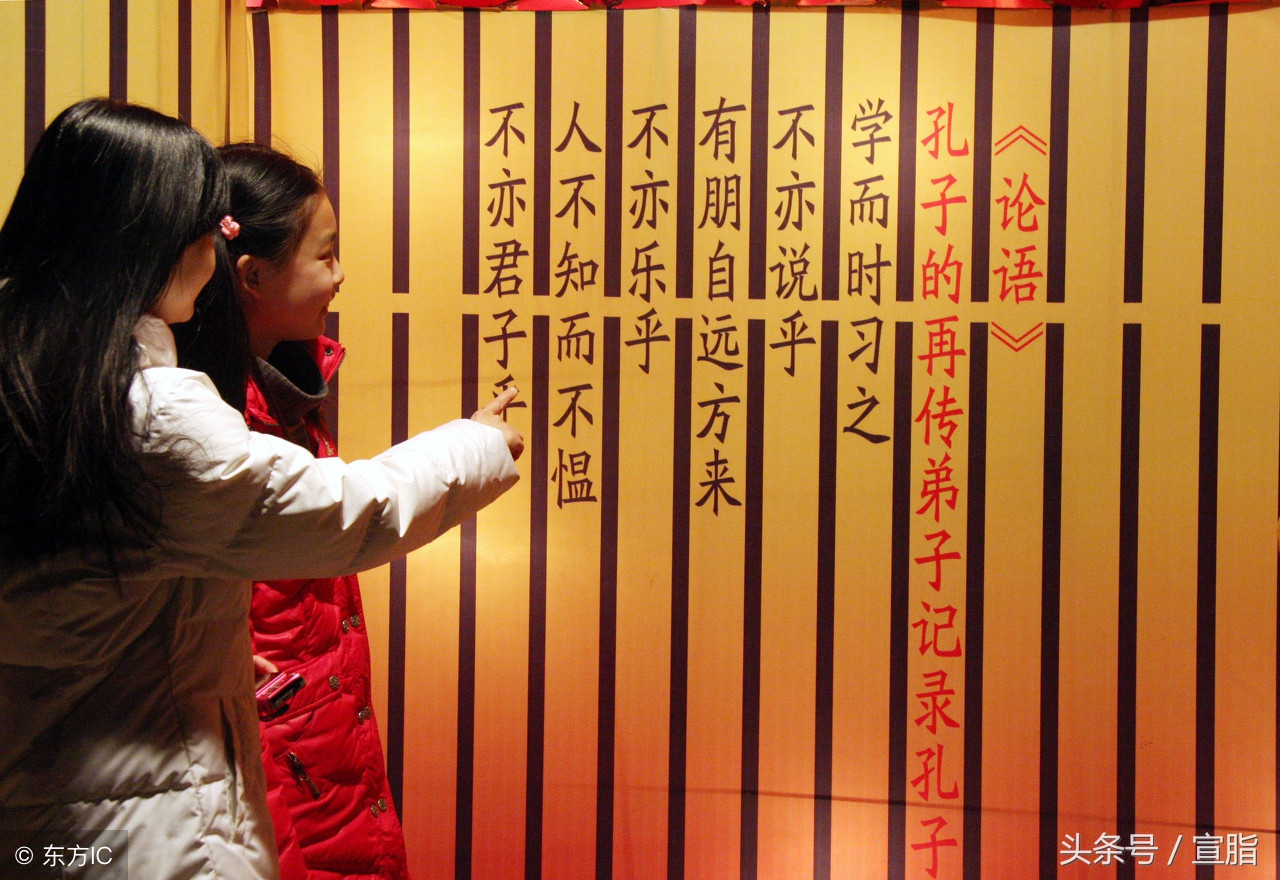 《论语》
孔子的再传弟子记录孔子
学而时习之
不亦说乎
有朋自远方来
不亦乐乎
人不知而不愠
不亦君子乎
© 东方IC
头条号 / 宣脂